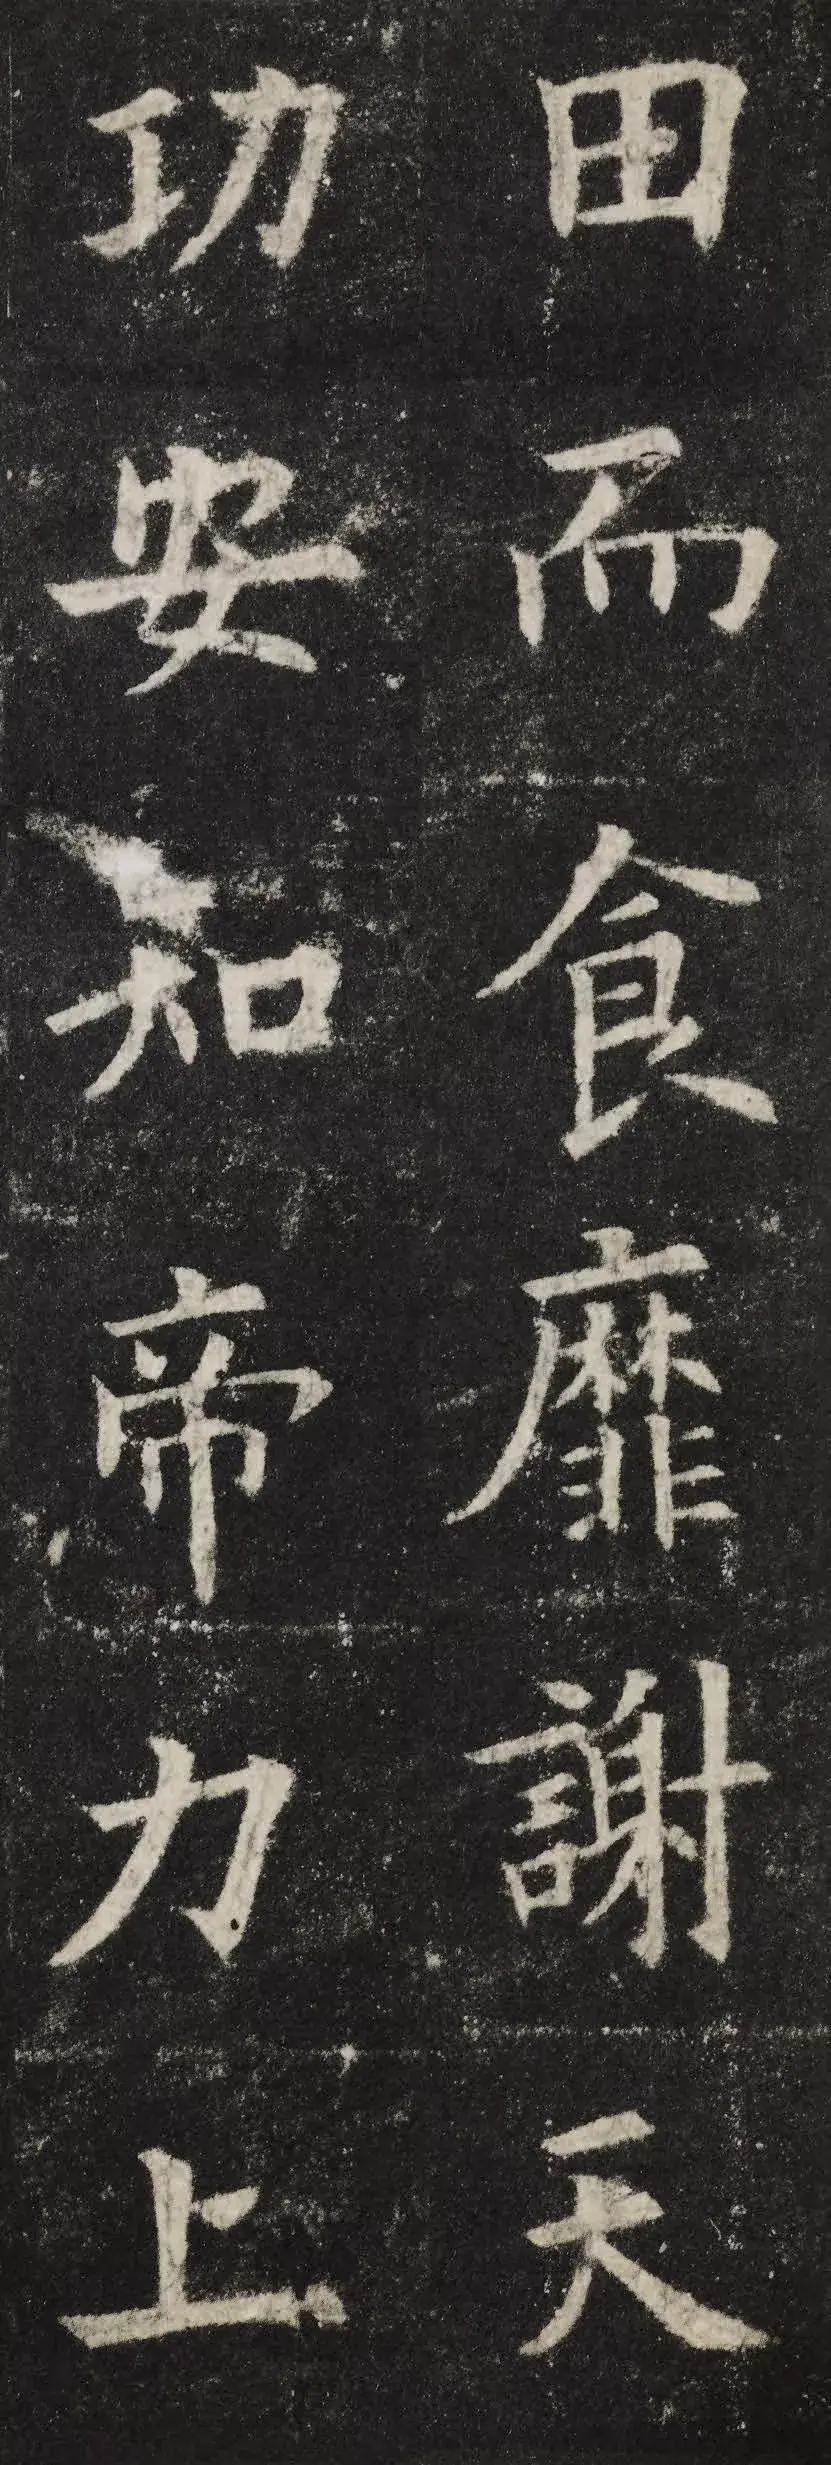 田而食靡謝天
功安知帝力上